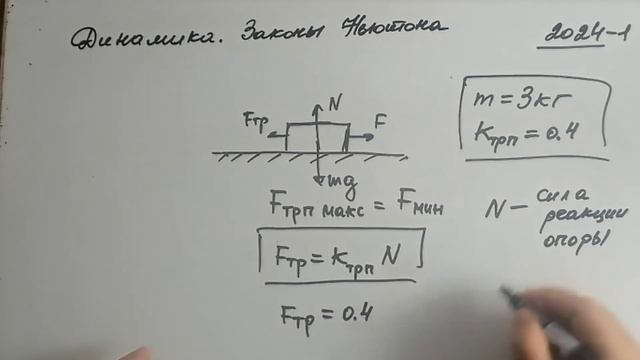 Динамика. Законы Ньютона
2024-1
N
Fтр
F
mg
m = 3кг
Kтрп = 0.4
Fтрп макс = Fмин
N — сила
реакции
опоры
Fтр = Kтрп N
Fтр = 0.4